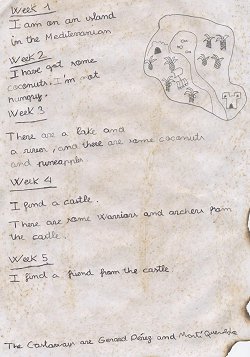 Week 1
I am on an island
in the Mediterranean
Week 2
I have got some
coconuts. I'm not
hungry.
Week 3
There are a lake and
a river, and there are some coconuts
and pineapples
Week 4
I find a castle.
There are some warriors and archers from
the castle.
Week 5
I find a friend from the castle.
The Castaways are Gerard Pérez and